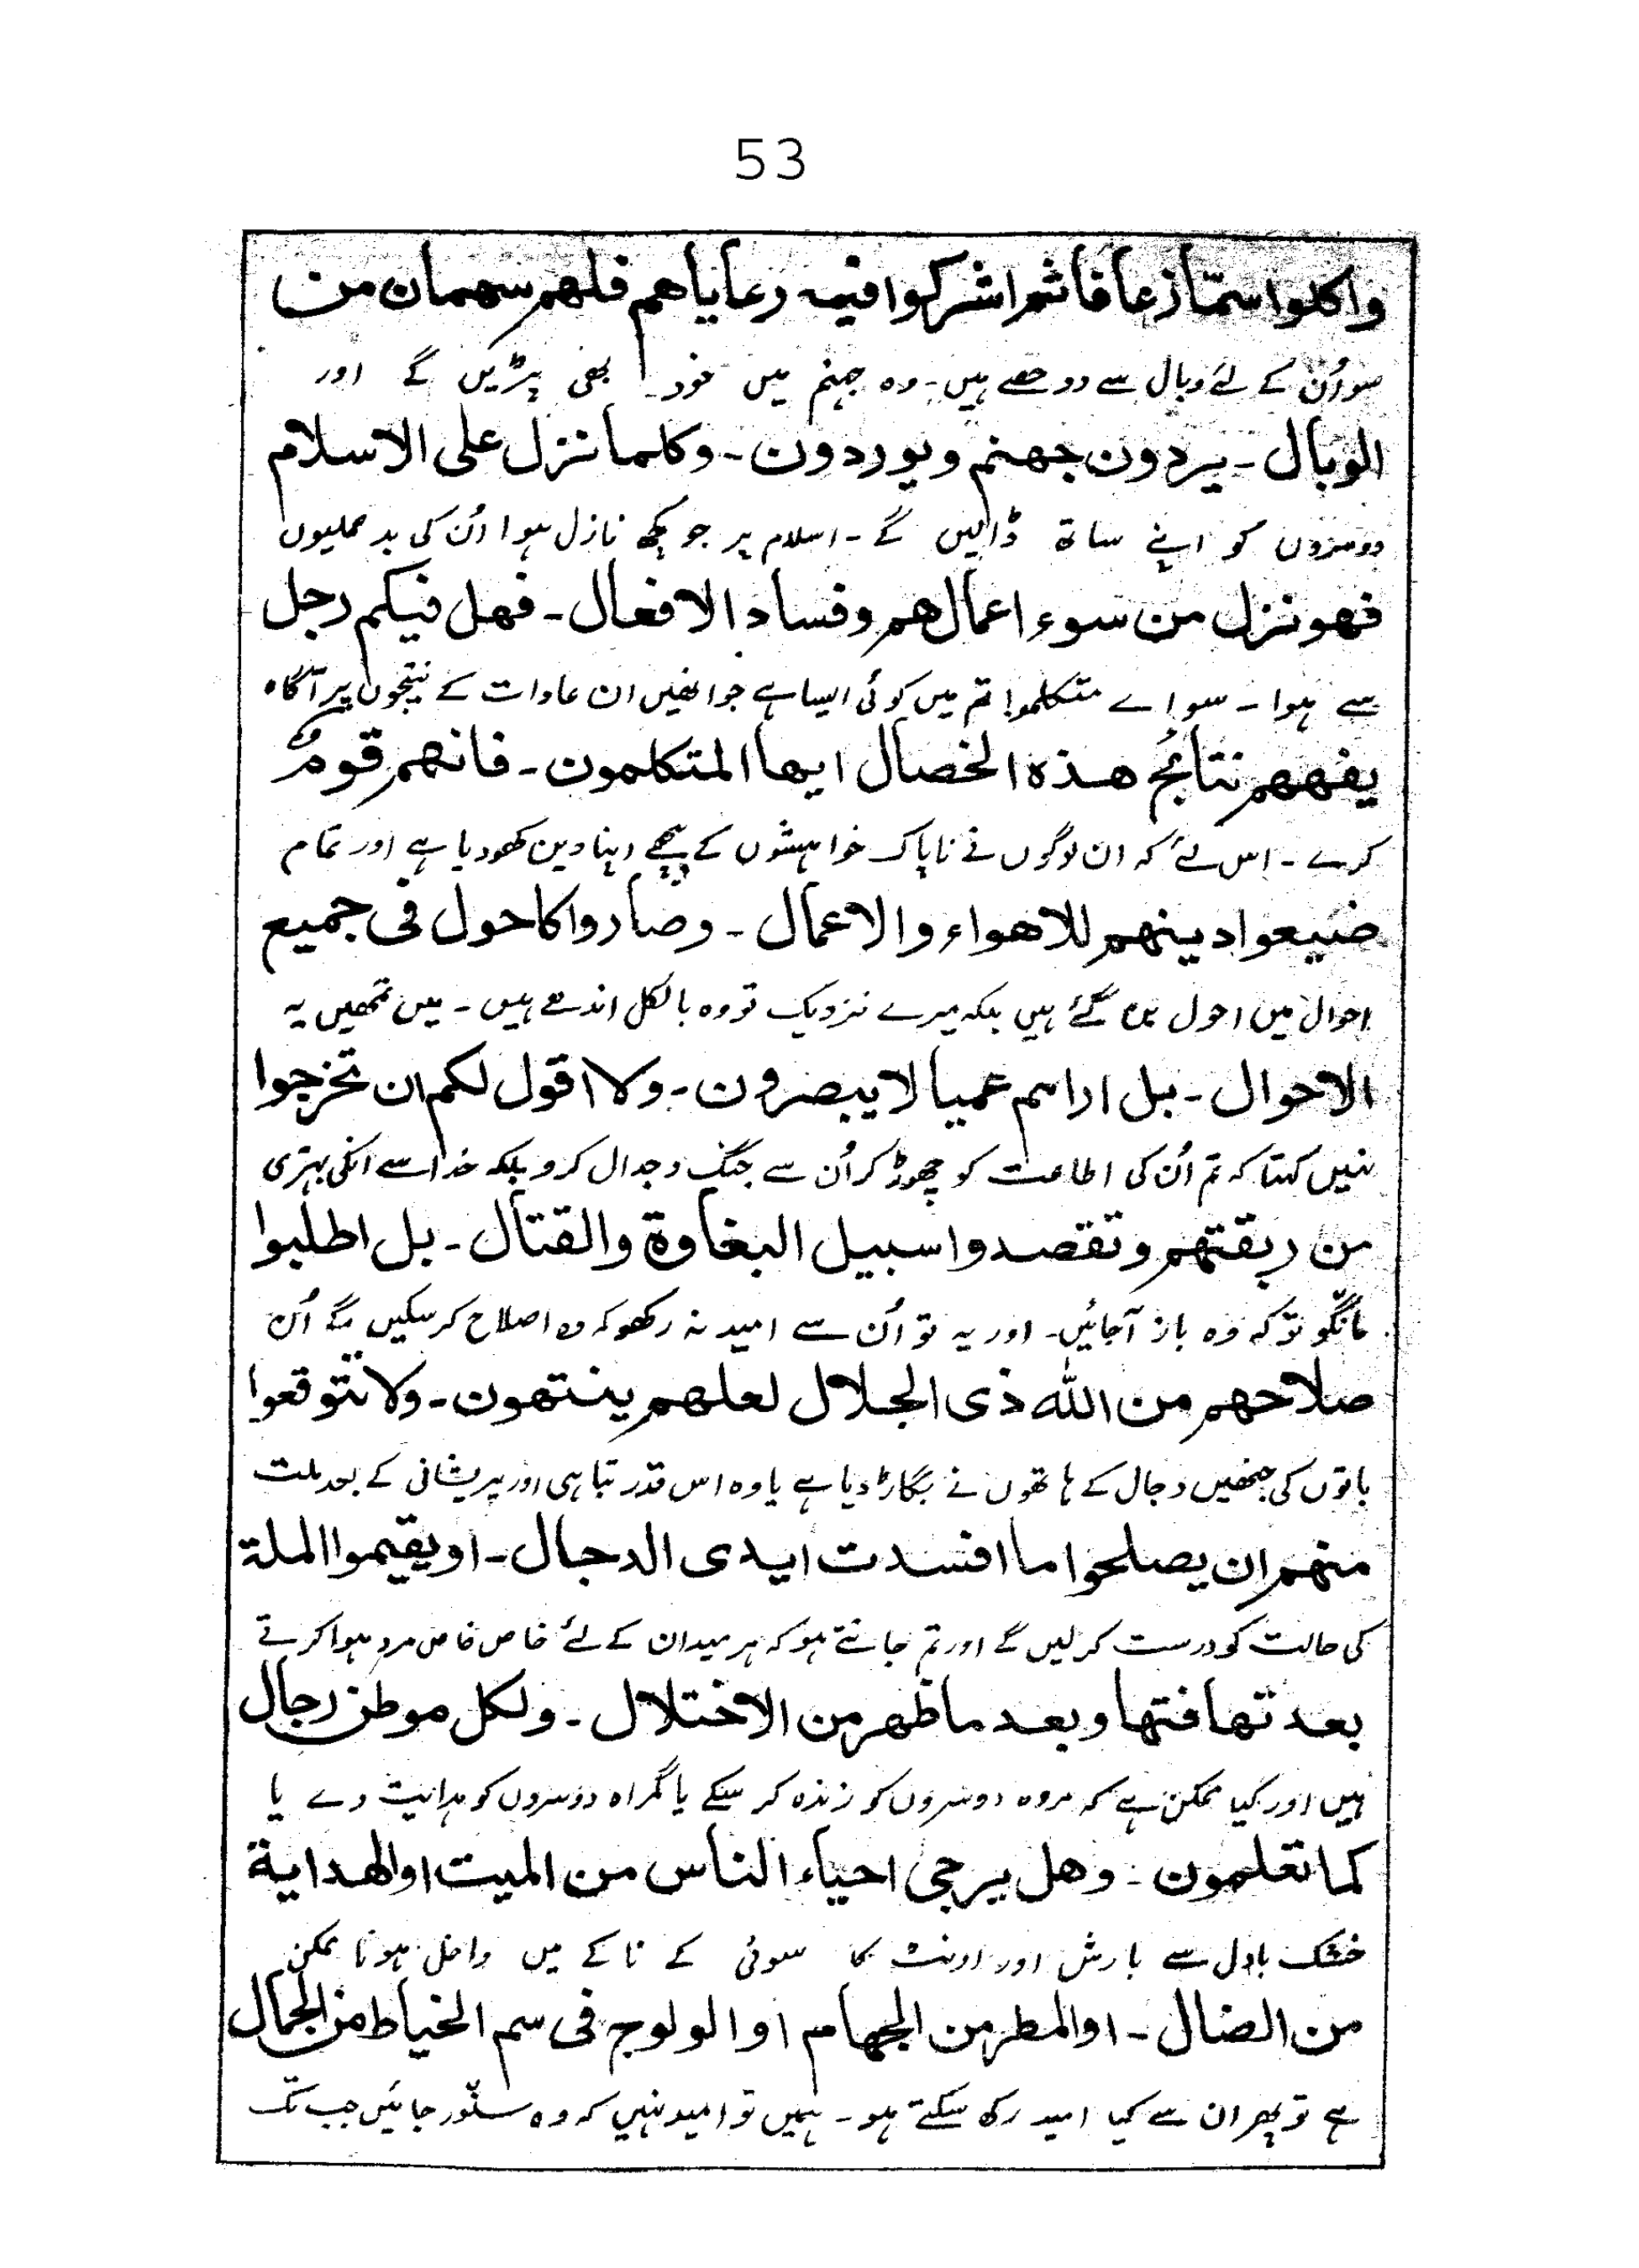 53
واكلوا سمّا زعافا ثم اشركوا فيه رعاياهم فلهم سهمان من
سو اُن کے لئے وبال سے دو حصے ہیں۔ وہ جہنم میں خود بھی پڑیں گے اور
الوبال ـ يردون جهنم ويوردون ـ وكلما نزل على الاسلام
دوسروں کو اپنے ساتھ ڈالیں گے ۔ اسلام پر جو کچھ نازل ہوا اُن کی بدعملیوں
فهو نزل من سوء اعمالهم وفساد الافعال ـ فهل فيكم رجل
سے ہوا ۔ سو اے متکلمو! تم میں کوئی ایسا ہے جو انھیں ان عادات کے نتیجوں پر آگاہ
يفهمهم نتائج هذه الخصال ايها المتكلمون ـ فانهم قومٌ
کرے ۔ اس لئے کہ ان لوگوں نے ناپاک خواہشوں کے پیچھے اپنا دین کھو دیا ہے اور تمام
ضيعوا دينهم للاهواء والاعمال ـ وصاروا كاحول في جميع
احوال میں احول بن گئے ہیں بلکہ میرے نزدیک تو وہ بالکل اندھے ہیں ۔ میں تمھیں یہ
الاحوال ـ بل اراهم عميا لا يبصرون ـ ولا اقول لكم ان تخرجوا
نہیں کہتا کہ تم اُن کی اطاعت کو چھوڑ کر اُن سے جنگ و جدال کرو بلکہ خدا سے انکی بہتری
من ربقتهم وتقصدوا سبيل البغاوة والقتال ـ بل اطلبوا
مانگو تو کہ وہ باز آجائیں۔ اور یہ تو اُن سے امید نہ رکھو کہ وہ اصلاح کرسکیں گے اُن
صلاحهم من الله ذى الجلال لعلهم ينتهون ـ ولا تتوقعوا
باتوں کی جنھیں دجال کے ہاتھوں نے بگاڑ دیا ہے یا وہ اس قدر تباہی اور پریشانی کے بعد ملت
منهم ان يصلحوا ما افسدت ايدى الدجال ـ او يقيموا الملة
کی حالت کو درست کرلیں گے اور تم جانتے ہو کہ ہر میدان کے لئے خاص خاص مرد ہوا کرتے
بعد تهافتها وبعد ما ظهر من الاختلال ـ ولكل موطن رجال
ہیں اور کیا ممکن ہے کہ مردہ دوسروں کو زندہ کر سکے یا گمراہ دوسروں کو ہدایت دے یا
كما تعلمون ـ وهل يرجى احياء الناس من الميت او الهداية
خشک بادل سے بارش اور اونٹ کا سوئی کے ناکے میں داخل ہونا ممکن
من الضال ـ او المطر من الجهام او الولوج في سم الخياط من الجمال
ہے تو پھر ان سے کیا امید رکھ سکتے ہو۔ ہمیں تو امید نہیں کہ وہ سنور جائیں جب تک